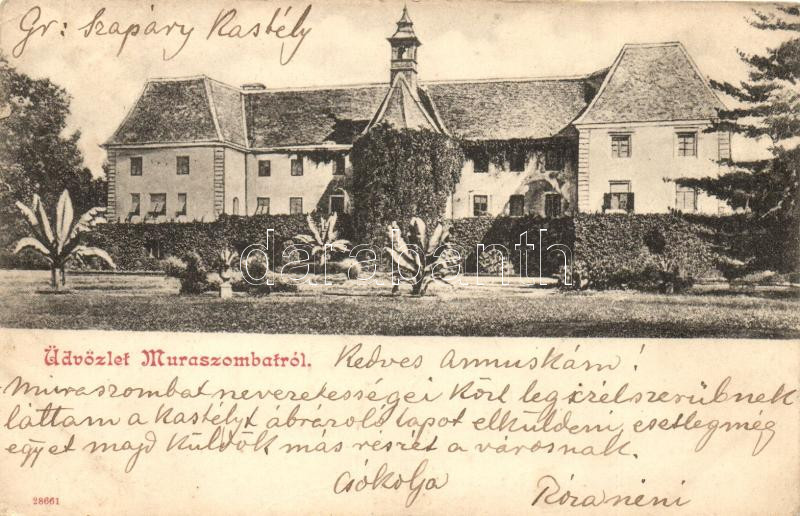 Gr: Szapáry Kastély
darabanth
Üdvözlet Muraszombatról.
Kedves Annuskám!
Muraszombat nevezetességei közt legszélszerübnek
láttam a kastélyt ábrázoló lapot elküldeni, esetleg még
egyet majd küldök más részét a városnak.
Csókolja
Róza néni
28661